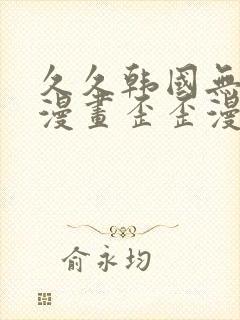 久久韩国無
漫畫歪歪漫
俞永均